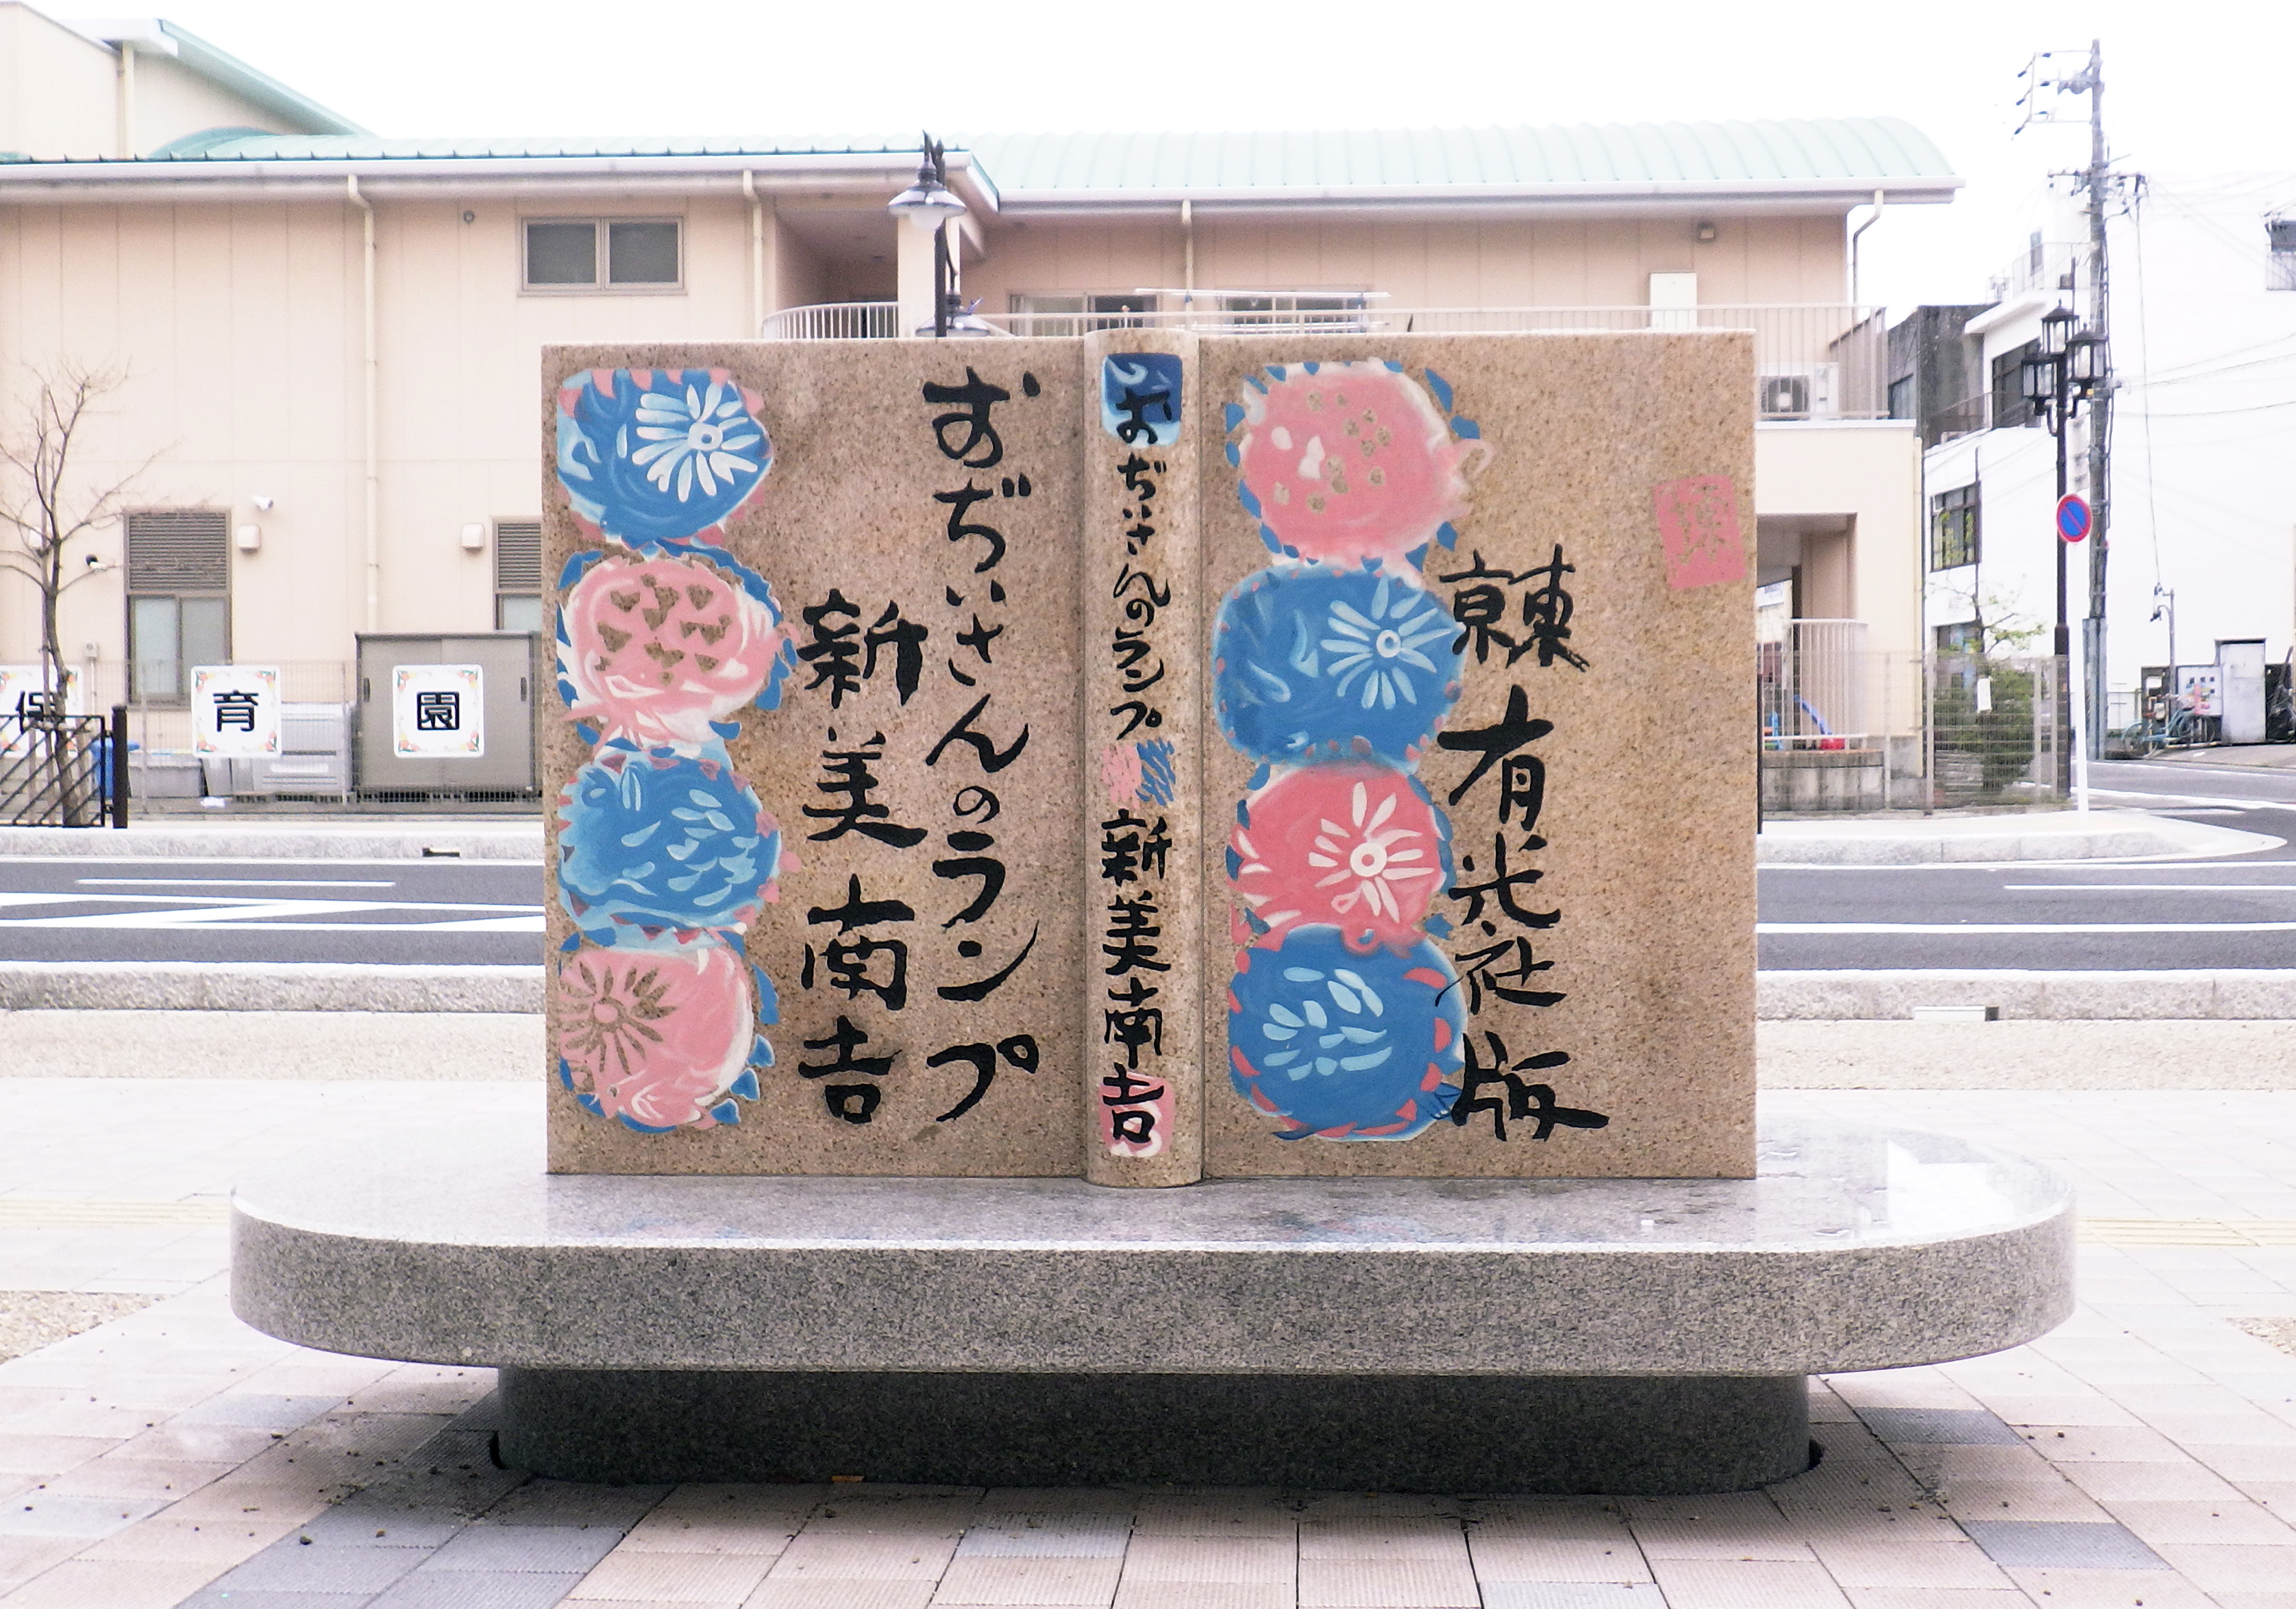 おぢいさんのランプ
新美南吉
おぢいさんのランプ
新美南吉
東京
有光社版
保育園